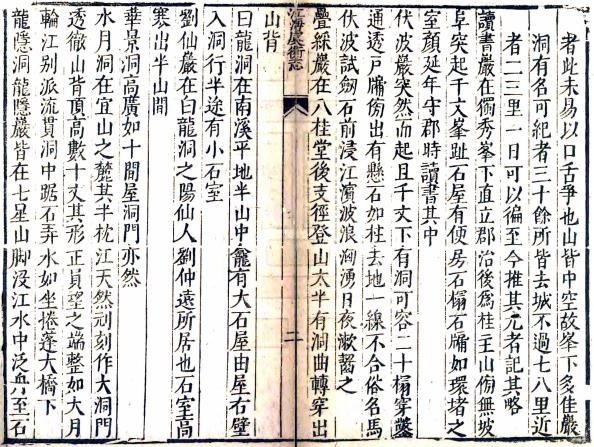 者此未易以口舌爭也山皆中空故峯下多佳巖
洞有名可紀者三十餘所皆去城不過七八里近
者二三里一日可以徧至今推其尤者記其略
讀書巖在獨秀峯下直立郡治後爲桂主山傍無坡
阜突起千丈峯趾石屋有便房石榻石牖如環堵之
室顏延年守郡時讀書其中
伏波巖突然而起且千丈下有洞可容二十榻穿鑿
通透戸牖傍出有懸石如柱去地一線不合俗名馬
伏波試劍石前浸江濱波浪洶湧日夜漱齧之
疊綵巖在八桂堂後支徑登山太半有洞曲轉穿出
桂海虞衡志
二
山背
白龍洞在南溪平地半山中龕有大石屋由屋右壁
入洞行半途有小石室
劉仙巖在白龍洞之陽仙人劉仲遠所居也石室高
寒出半山間
華景洞高廣如十間屋洞門亦然
水月洞在宜山之麓其半枕江天然刓刻作大洞門
透徹山背頂高數十丈其形正員望之端整如大月
輪江别派流貫洞中踞石弄水如坐捲蓬大橋下
龍隱洞龍隱巖皆在七星山脚没江水中泛舟至石